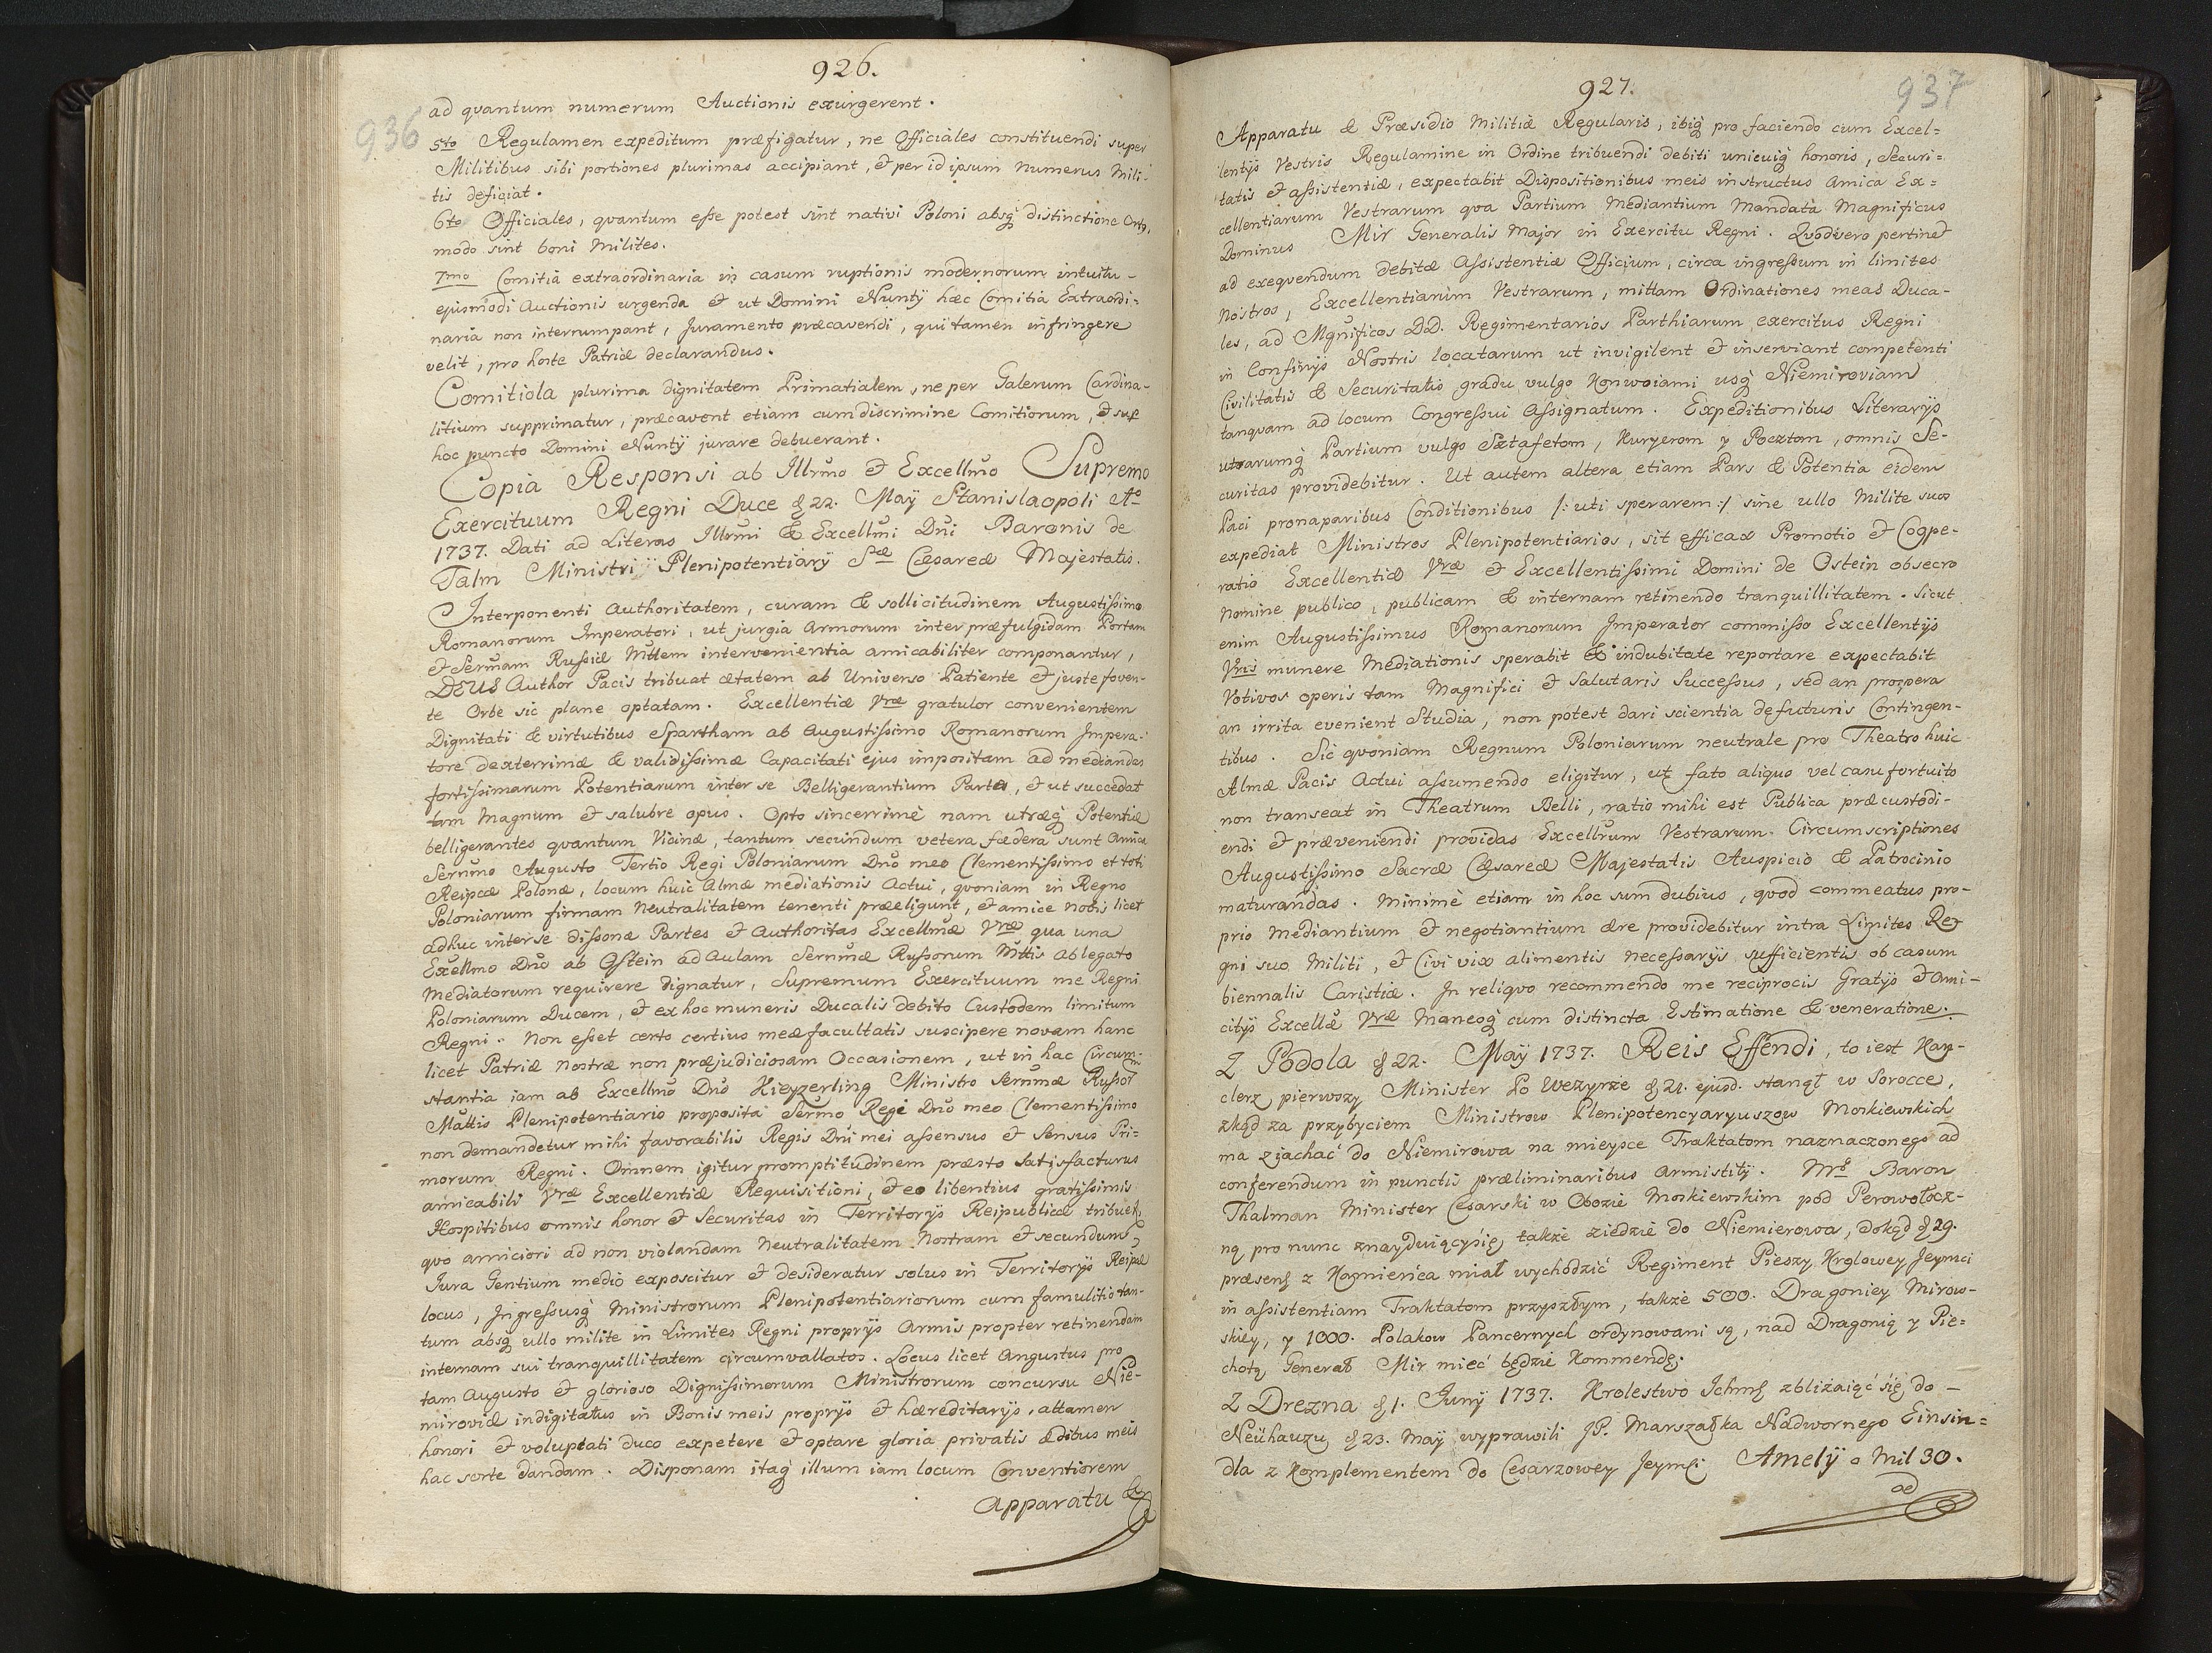 926.
936
ad qvantum numerum Auctionis exurgerent.
5to Regulamen expeditum præfigatur, ne Officiales constituendi super
Militibus sibi portiones plurimas accipiant, & per id ipsum numerus Mili-
tis deficiat.
6to Officiales, qvantum esse potest sint nativi Poloni absq distinctione Ortq,
modo sint boni Milites.
7mo Comitia extraordinaria in casum ruptionis modernorum intuitu
ejusmodi Auctionis urgenda & ut Domini Nuntÿ hæc Comitia Extraordi=
naria non interrumpant, Juramento præcavendi, qui tamen infringere
velit, pro hoste Patriæ declarandus.
Comitiola plurima dignitatem Primatialem, ne per Galerum Cardina-
litium supprimatur, præcavent etiam cum discrimine Comitiorum, & sup
hoc puncto Domini Nuntÿ jurare debuerant.
Copia Responsi ab Illrmo & Excellmo Supremo
Exercituum Regni Duce d 22. Maÿ Stanislaopoli Ao
1737. Dati ad Literas Illrmi & Excellmi Dni Baronis de
Talm Ministri Plenipotentiarÿ Sæ Cæsareæ Majestatis.
Interponenti authoritatem, curam & sollicitudinem Augustissimo
Romanorum Imperatori, ut jurgia Armorum inter præfulgidam Portam
& Sermam Russiæ Mttem intervenientia amicabiliter componantur,
DEUS Author Pacis tribuat ætatem ab Universo Patiente & juste foven-
te Orbe sic plane optatam. Excellentiæ Vræ gratulor convenientem
Dignitati & virtutibus Spartham ab Augustissimo Romanorum Impera-
tore dexterrimæ & validissimæ Capacitati ejus impositam ad mediandas
fortissimarum Potentiarum inter se Belligerantium Partes, & ut succedat
tam Magnum & salubre opus. Opto sincerrimè nam utræq Potentiæ
belligerantes qvantum Vicinæ, tantum secundum vetera fædera sunt Amicæ
Sermo Augusto Tertio Regi Poloniarum Dno meo Clementissimo et toti
Reipcæ Polonæ, locum huic Almæ mediationis Actui, qvoniam in Regno
Poloniarum firmam Neutralitatem tenenti præeligunt, & amice nobis licet
adhuc inter se dissonæ Partes & Authoritas Excellmæ Vræ qua una
Excellmo Dno ab Ostein ad Aulam Sermæ Russorum Mttis ablegato
Mediatorum reqvirere dignatur, Supremum Exercituum me Regni
Poloniarum Ducem, & ex hoc muneris Ducalis debito Custodem limitum
Regni. Non esset certo certius meæ facultatis suscipere novam hanc
licet Patriæ Nostræ non præjudiciosam Occasionem, ut in hac Circum-
stantia iam ab Excellmo Dno Kieyzerling Ministro Sermæ Russor
Mattis Plenipotentiario proposita Sermo Regi Dno meo Clementissimo
non demandetur mihi favorabilis Regis Dni mei assensus & Sensus Pri=
morum Regni. Omnem igitur promptitudinem præsto satisfacturus
amicabili Vræ Excellentiæ Reqvisitioni, & eo libentius gratissimis
Hospitibus omnis honor & Securitas in Territorÿs Reipublicæ tribuet,
qvo amiciori ad non violandam Neutralitatem Nostram & secundum
Jura Gentium medio exposcitur & desideratur solus in Territorÿs Reipcæ
locus, Ingressusq Ministrorum Plenipotentiariorum cum famulitio tan-
tum absq ullo milite in Limites Regni proprÿs Armis propter retinendam
internam sui tranquillitatem circumvallatos. Locus licet Angustus pro
tam Augusto & glorioso Dignissimorum Ministrorum concursu Nie-
miroviæ indigitatus in Bonis meis proprÿs & hæreditarÿs, attamen
honori & voluptati duco expetere & optare gloria privatis ædibus meis
hac sorte dandam. Disponam itaq illum iam locum Conventiorem
Apparatu &
927.
937
Apparatu & Præsidio Militiæ Regularis, ibiq pro faciendo cum Excel=
lentÿs Vestris Regulamine in Ordine tribuendi debiti unicuiq honoris, Securi=
tatis & assistentiæ, expectabit Dispositionibus meis instructus amica Ex=
cellentiarum Vestrarum qva Partium Mediantium Mandata Magnificus
Dominus Mir Generalis Major in Exercitu Regni. Qvodvero pertinet
ad exeqvendum debitæ Assistentiæ Officium, circa ingressum in limites
nostros, Excellentiarum Vestrarum, mittam Ordinationes meas Duca-
les, ad Mgnificos DD. Regimentarios Parthiarum exercitus Regni
in Confinÿs Nostris locatarum ut invigilent & inserviant competenti
Civilitatis & Securitatis gradu vulgo Konwoiami usq Niemiroviam
tanqvam ad locum Congressui Assignatum. Expeditionibus Literarÿs
utrarumq Partium vulgo Sztafetom, Kuryerom y Pocztom, omnis Se-
curitas providebitur. Ut autem altera etiam Pars & Potentia eidem
Paci pronaparibus Conditionibus /: uti sperarem :/ sine ullo Milite suos
expediat Ministros Plenipotentiarios, sit efficax Promotio & Coope-
ratio Excellentiæ Vræ & Excellentissimi Domini de Ostein obsecro
nomine publico, publicam & internam retinendo tranquillitatem. Sicut
enim Augustissimus Romanorum Imperator commisso Excellentÿs
Vris munere Mediationis sperabit & indubitate reportare expectabit
Votivos operis tam Magnifici & Salutaris Successus, sed an prospera
an irrita evenient Studia, non potest dari scientia defuturis Contingen-
tibus. Sic qvoniam Regnum Poloniarum neutrale pro Theatro huic
Almæ Pacis Actui assumendo eligitur, ut fato aliquo vel casu fortuito
non transeat in Theatrum Belli, ratio mihi est Publica præcustodi-
endi & præveniendi providas Excellrum Vestrarum Circumscriptiones
Augustissimo Sacræ Cæsareæ Majestatis Auspicio & Patrocinio
maturandas. Minimè etiam in hoc sum dubius, qvod commeatus pro-
prio Mediantium & negotiantium ære providebitur intra Limites Re-
gni suo Militi, & Civi vix alimentis necessarÿs sufficientis ob casum
biennalis Caristiæ. In reliqvo recommendo me reciprocis Gratÿs & Ami-
citÿs Excellæ Vræ Maneoq cum distincta Estimatione & veneratione.
Z Podola d 22. Maÿ 1737. Reis Effendi, to iest Kan-
clerz pierwszy Minister Po Wezyrze d 21. ejusd. stanął w Sorocce,
zkąd za przybyciem Ministrow Plenipotencyaryuszow Moskiewskich
ma zjachać do Niemirowa na mieysce Traktatom naznaczonego ad
conferendum in punctis præliminaribus Armistitÿ. Mr Baron
Thalman Minister Cesarski w Obozie Moskiewskim pod Perowołocz-
ną pro nunc znayduiącysię, także ziedzie do Niemierowa, dokąd d 29.
præsens z Kamieńca miał wychodzić Regiment Pieszy Krolowey Jeymci
in assistentiam Traktatom przyszłym, także 500. Dragoniey Mirow-
skiey, y 1000. Polakow Pancernych ordynowani są, nad Dragonią y Pie=
chotą Generał Mir mieć będzie Kommendę.
Z Drezna d 1. Junÿ 1737. Krolestwo Ichms zbliżaiąć się do
Neühauzu d 23. Maÿ wyprawili JP. Marszałka Nadwornego Einsin=
dla z Komplementem do Cesarzowey Jeyms Amelÿ o Mil 30.
ad